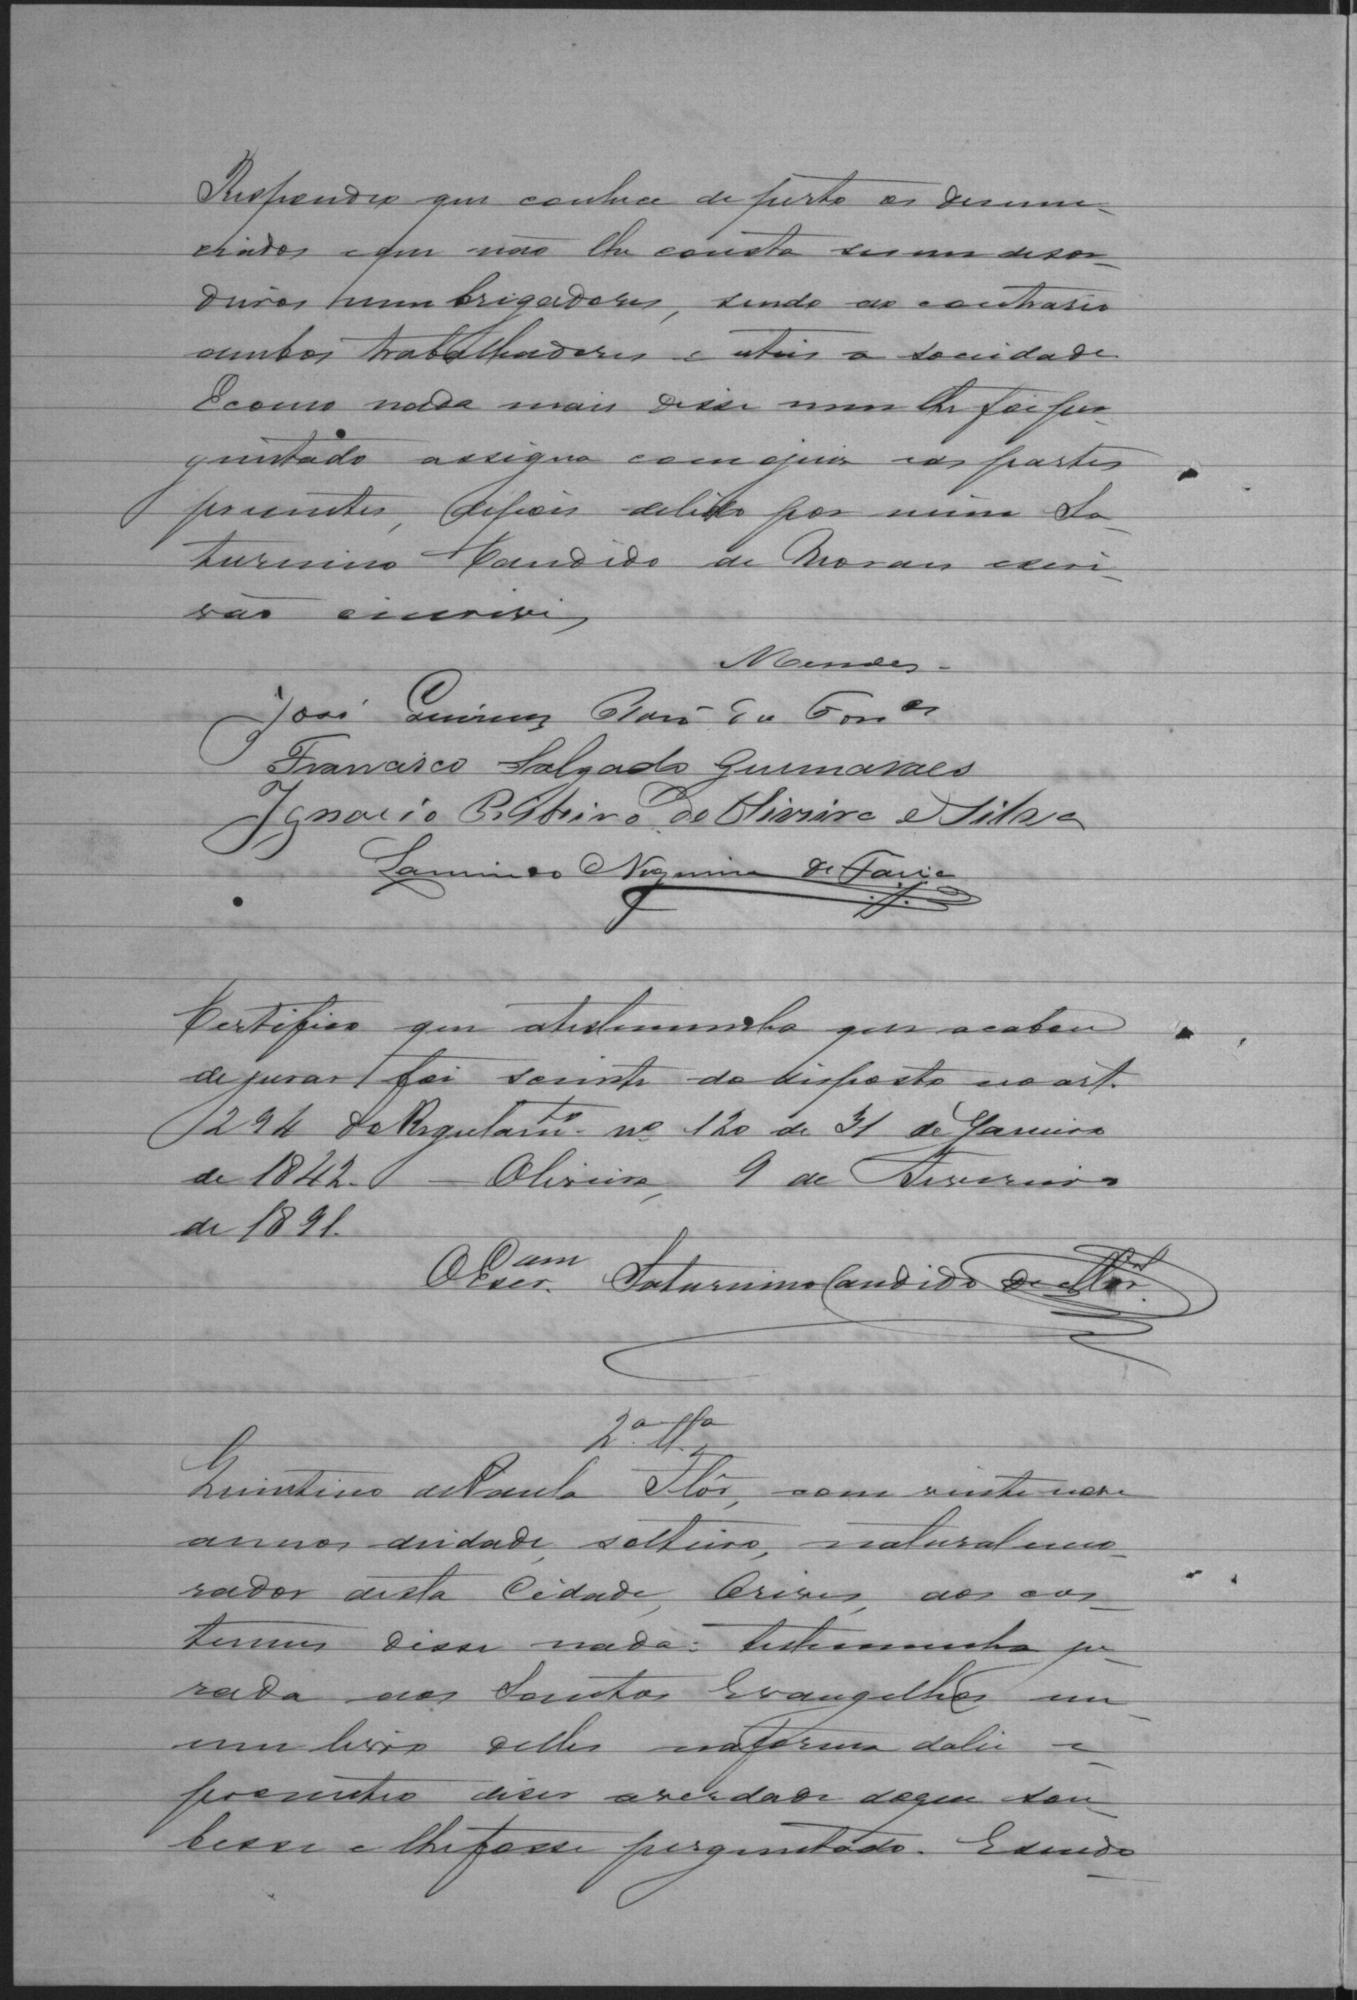 Respondeo que conhece de perto os denun-
ciados e que não lhe consta serem desor-
deiros nem brigadores, sendo ao contrario
ambos trabalhadores e uteis a sociedade
E como nada mais disse nem lhe foi per-
guntado assigna com o juiz e as partes
presentes, depois de lido por mim Sa-
turnino Candido de Moraes escri-
vão e escrevi,
Mendes.
José
Francisco Salgado Guimaraes
Ignacio Ribeiro de Oliveira e Silva
Nogueira de Faria
Certifico que a testemunha que acabou
de jurar foi sciente do disposto no art.
294 do Regulamto. nº 120 de 31 de Janeiro
de 1842. — Oliveira, 9 de Fevereiro
de 1891.
O Escr. Saturnino Candido de Mor.
2ª Ta
Quintino de Paula Flôr, com vinte nove
annos de idade, solteiro, natural e mo-
rador desta Cidade, aos cos-
tumes disse nada: testemunha ju-
rada aos Santos Evangelhos em
um livro delles na forma da lei e
prometteo diser a verdade do que sou-
besse e lhe fosse perguntado. E sendo